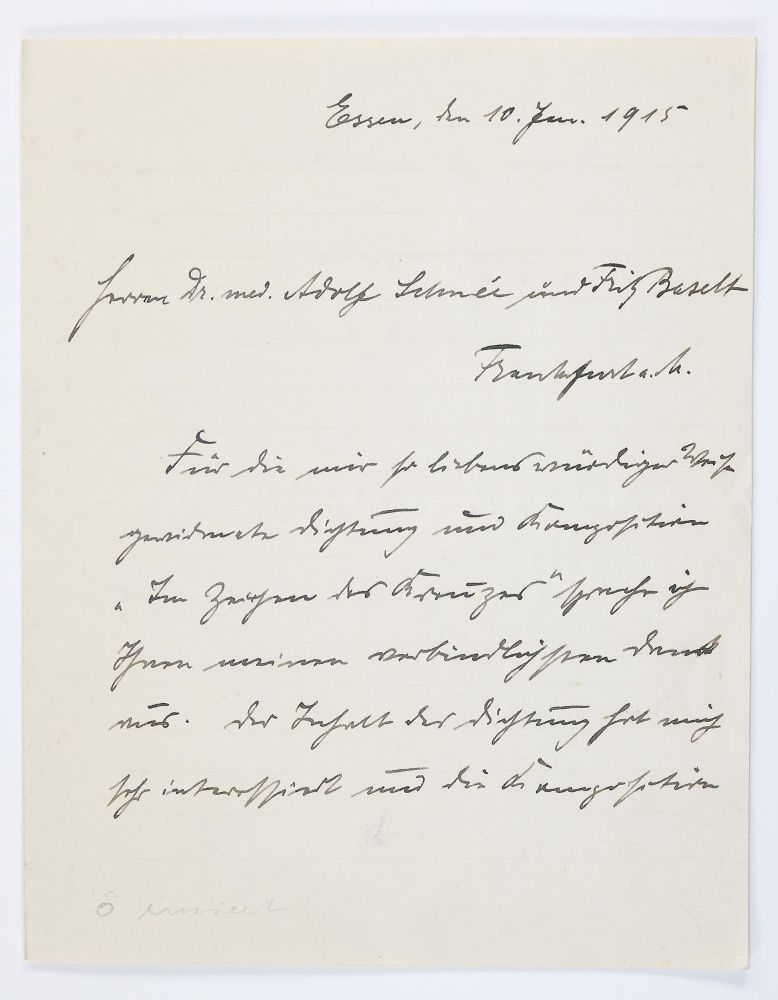 Essen, den 10. Jan. 1915
Herren Dr. med. Adolf Schnée und Fritz Baselt
Frankfurt a. M.
Für die mir so liebenswürdiger Weise
gewidmete Dichtung und Komposition
„Im Zeichen des Kreuzes" spreche ich
Ihnen meinen verbindlichsten Dank
aus. Der Inhalt der Dichtung hat mich
sehr interessiert und die Komposition